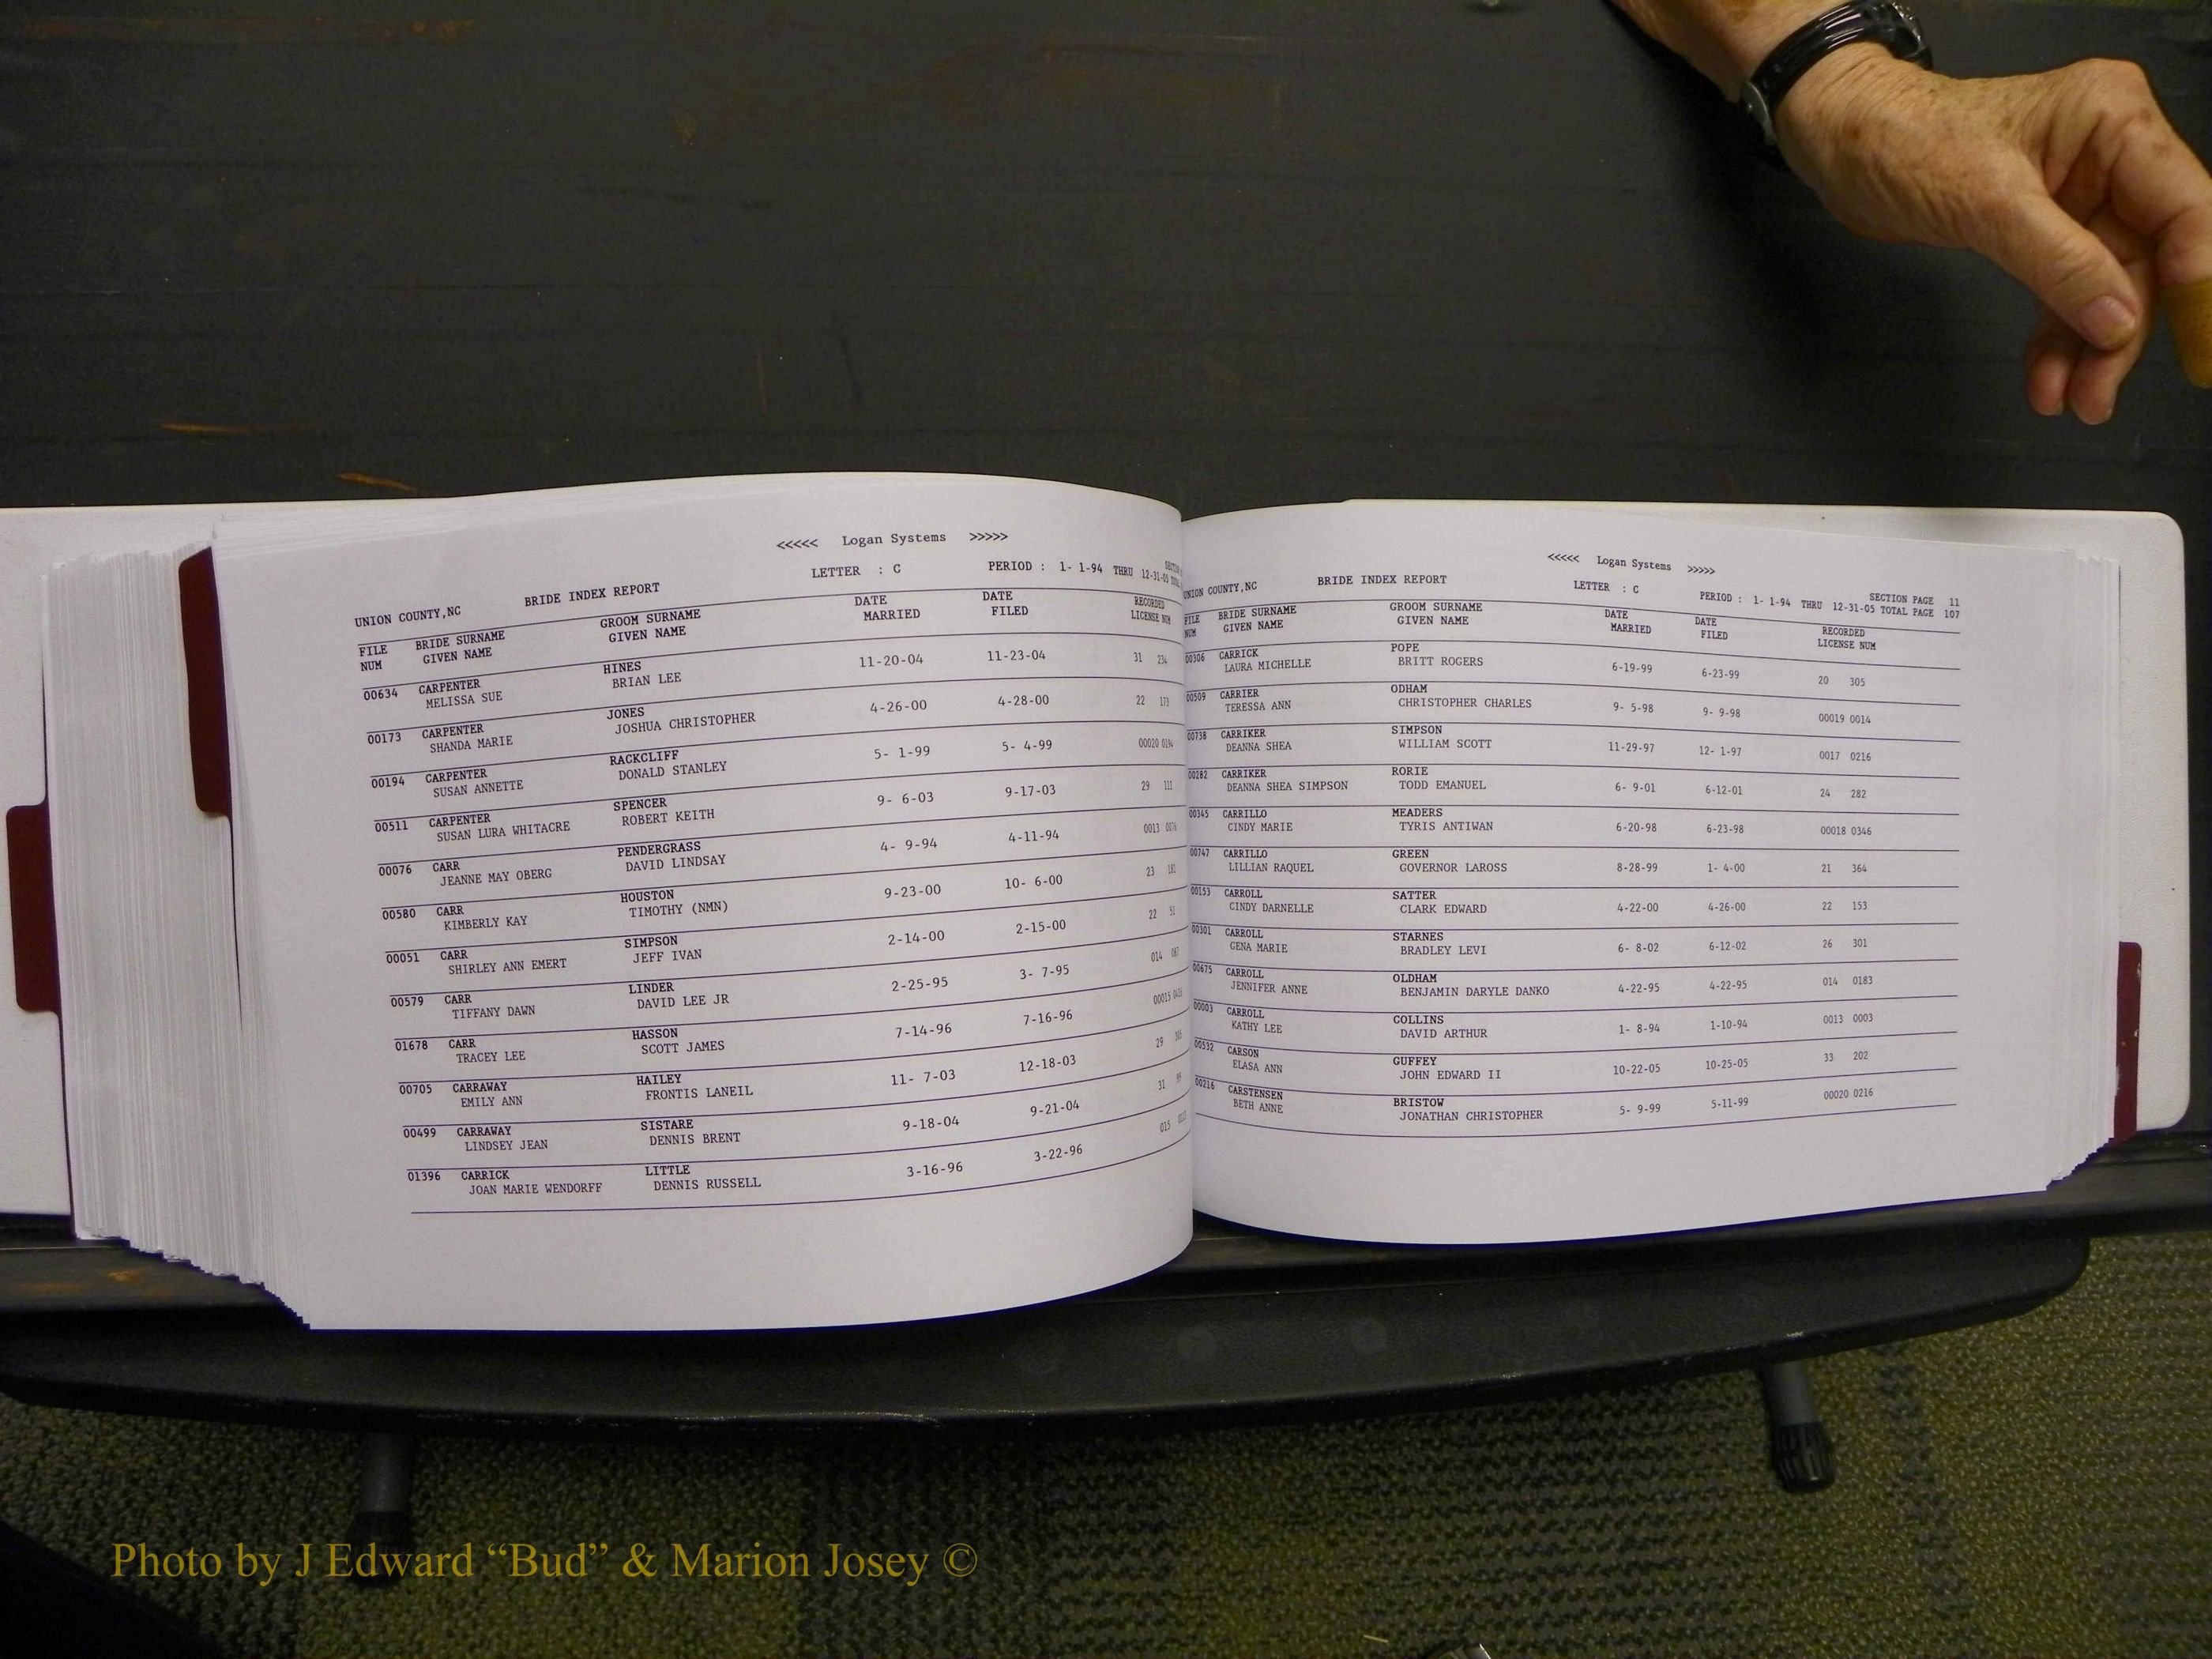 <<<<< Logan Systems >>>>>
UNION COUNTY,NC BRIDE INDEX REPORT LETTER : C PERIOD : 1- 1-94 THRU 12-31-05
FILE BRIDE SURNAME GROOM SURNAME DATE DATE RECORDED
NUM GIVEN NAME GIVEN NAME MARRIED FILED LICENSE NUM
00634 CARPENTER HINES 11-20-04 11-23-04 31 234
MELISSA SUE BRIAN LEE
00173 CARPENTER JONES 4-26-00 4-28-00 22 173
SHANDA MARIE JOSHUA CHRISTOPHER
00194 CARPENTER RACKCLIFF 5- 1-99 5- 4-99 00020 0194
SUSAN ANNETTE DONALD STANLEY
00511 CARPENTER SPENCER 9- 6-03 9-17-03 29 111
SUSAN LURA WHITACRE ROBERT KEITH
00076 CARR PENDERGRASS 4- 9-94 4-11-94 0013 0076
JEANNE MAY OBERG DAVID LINDSAY
00580 CARR HOUSTON 9-23-00 10- 6-00 23
KIMBERLY KAY TIMOTHY (NMN)
00051 CARR SIMPSON 2-14-00 2-15-00 22 51
SHIRLEY ANN EMERT JEFF IVAN
00579 CARR LINDER 2-25-95 3- 7-95 014
TIFFANY DAWN DAVID LEE JR
01678 CARR HASSON 7-14-96 7-16-96 00015
TRACEY LEE SCOTT JAMES
00705 CARRAWAY HAILEY 11- 7-03 12-18-03 29
EMILY ANN FRONTIS LANEIL
00499 CARRAWAY SISTARE 9-18-04 9-21-04 31
LINDSEY JEAN DENNIS BRENT
01396 CARRICK LITTLE 3-16-96 3-22-96 015
JOAN MARIE WENDORFF DENNIS RUSSELL
<<<<< Logan Systems >>>>>
UNION COUNTY,NC BRIDE INDEX REPORT LETTER : C SECTION PAGE 11
PERIOD : 1- 1-94 THRU 12-31-05 TOTAL PAGE 107
FILE BRIDE SURNAME GROOM SURNAME DATE DATE RECORDED
NUM GIVEN NAME GIVEN NAME MARRIED FILED LICENSE NUM
00306 CARRICK POPE 6-19-99 6-23-99 20 305
LAURA MICHELLE BRITT ROGERS
00509 CARRIER ODHAM 9- 5-98 9- 9-98 00019 0014
TERESSA ANN CHRISTOPHER CHARLES
00738 CARRIKER SIMPSON 11-29-97 12- 1-97 0017 0216
DEANNA SHEA WILLIAM SCOTT
00282 CARRIKER RORIE 6- 9-01 6-12-01 24 282
DEANNA SHEA SIMPSON TODD EMANUEL
00345 CARRILLO MEADERS 6-20-98 6-23-98 00018 0346
CINDY MARIE TYRIS ANTIWAN
00747 CARRILLO GREEN 8-28-99 1- 4-00 21 364
LILLIAN RAQUEL GOVERNOR LAROSS
00153 CARROLL SATTER 4-22-00 4-26-00 22 153
CINDY DARNELLE CLARK EDWARD
00301 CARROLL STARNES 6- 8-02 6-12-02 26 301
GENA MARIE BRADLEY LEVI
00675 CARROLL OLDHAM 4-22-95 4-22-95 014 0183
JENNIFER ANNE BENJAMIN DARYLE DANKO
00003 CARROLL COLLINS 1- 8-94 1-10-94 0013 0003
KATHY LEE DAVID ARTHUR
00532 CARSON GUFFEY 10-22-05 10-25-05 33 202
ELASA ANN JOHN EDWARD II
00216 CARSTENSEN BRISTOW 5- 9-99 5-11-99 00020 0216
BETH ANNE JONATHAN CHRISTOPHER
Photo by J Edward “Bud” & Marion Josey ©